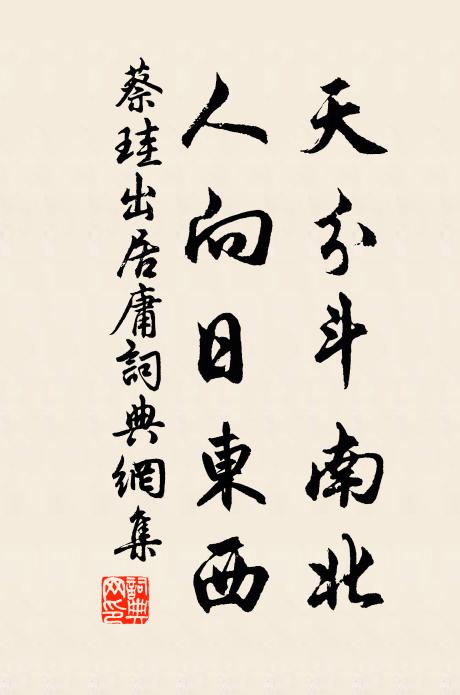 天分斗南北
人向日東西
蔡珪出居庸詞典網集
詞典
网印